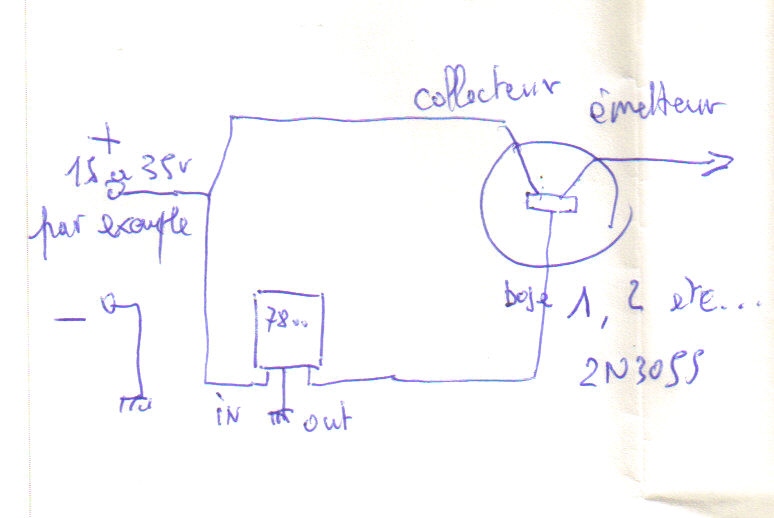 collecteur
émetteur
+
15 à 35v
par exemple
-
78...
in
out
base 1, 2 etc...
2N3055